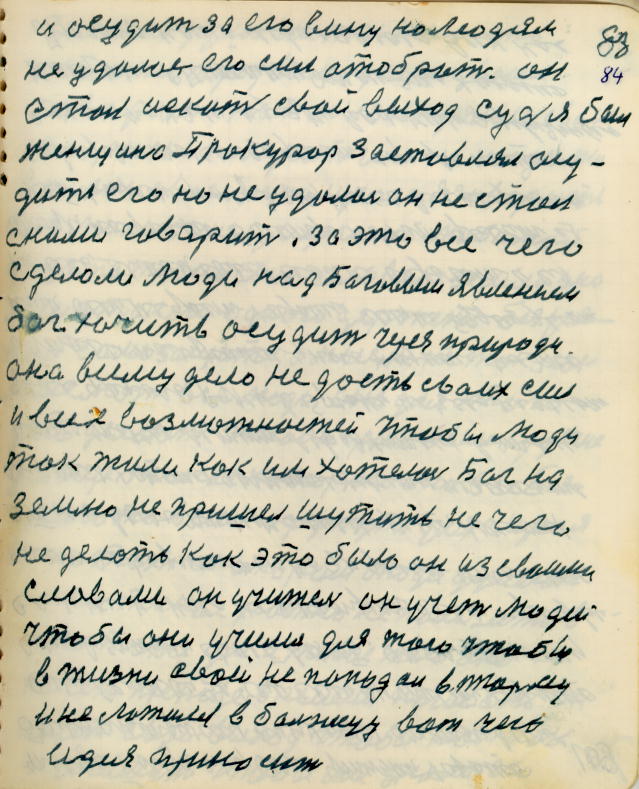 и осудит за его вину но людям
83
84
не удалос его сил отобрат. он
стал искать свой выход судя был
женщина Прокурор заставлял осу-
дить его но не удалос он не стал
снами говарит. за это все чего
сделали люди над Боговым явлением
бог хочить осудит через природу.
она всему дело не дасть своих сил
и всех возможностей чтобы люди
так жили как им хотелос Бог на
землю не пришел шутить не чего
не делать как это было он из своими
словами он учител он учет людей
чтобы они учили для того чтобы
в жизни своей не попадал в тюрму
и не ложился в болницу вот чего
идея приносит